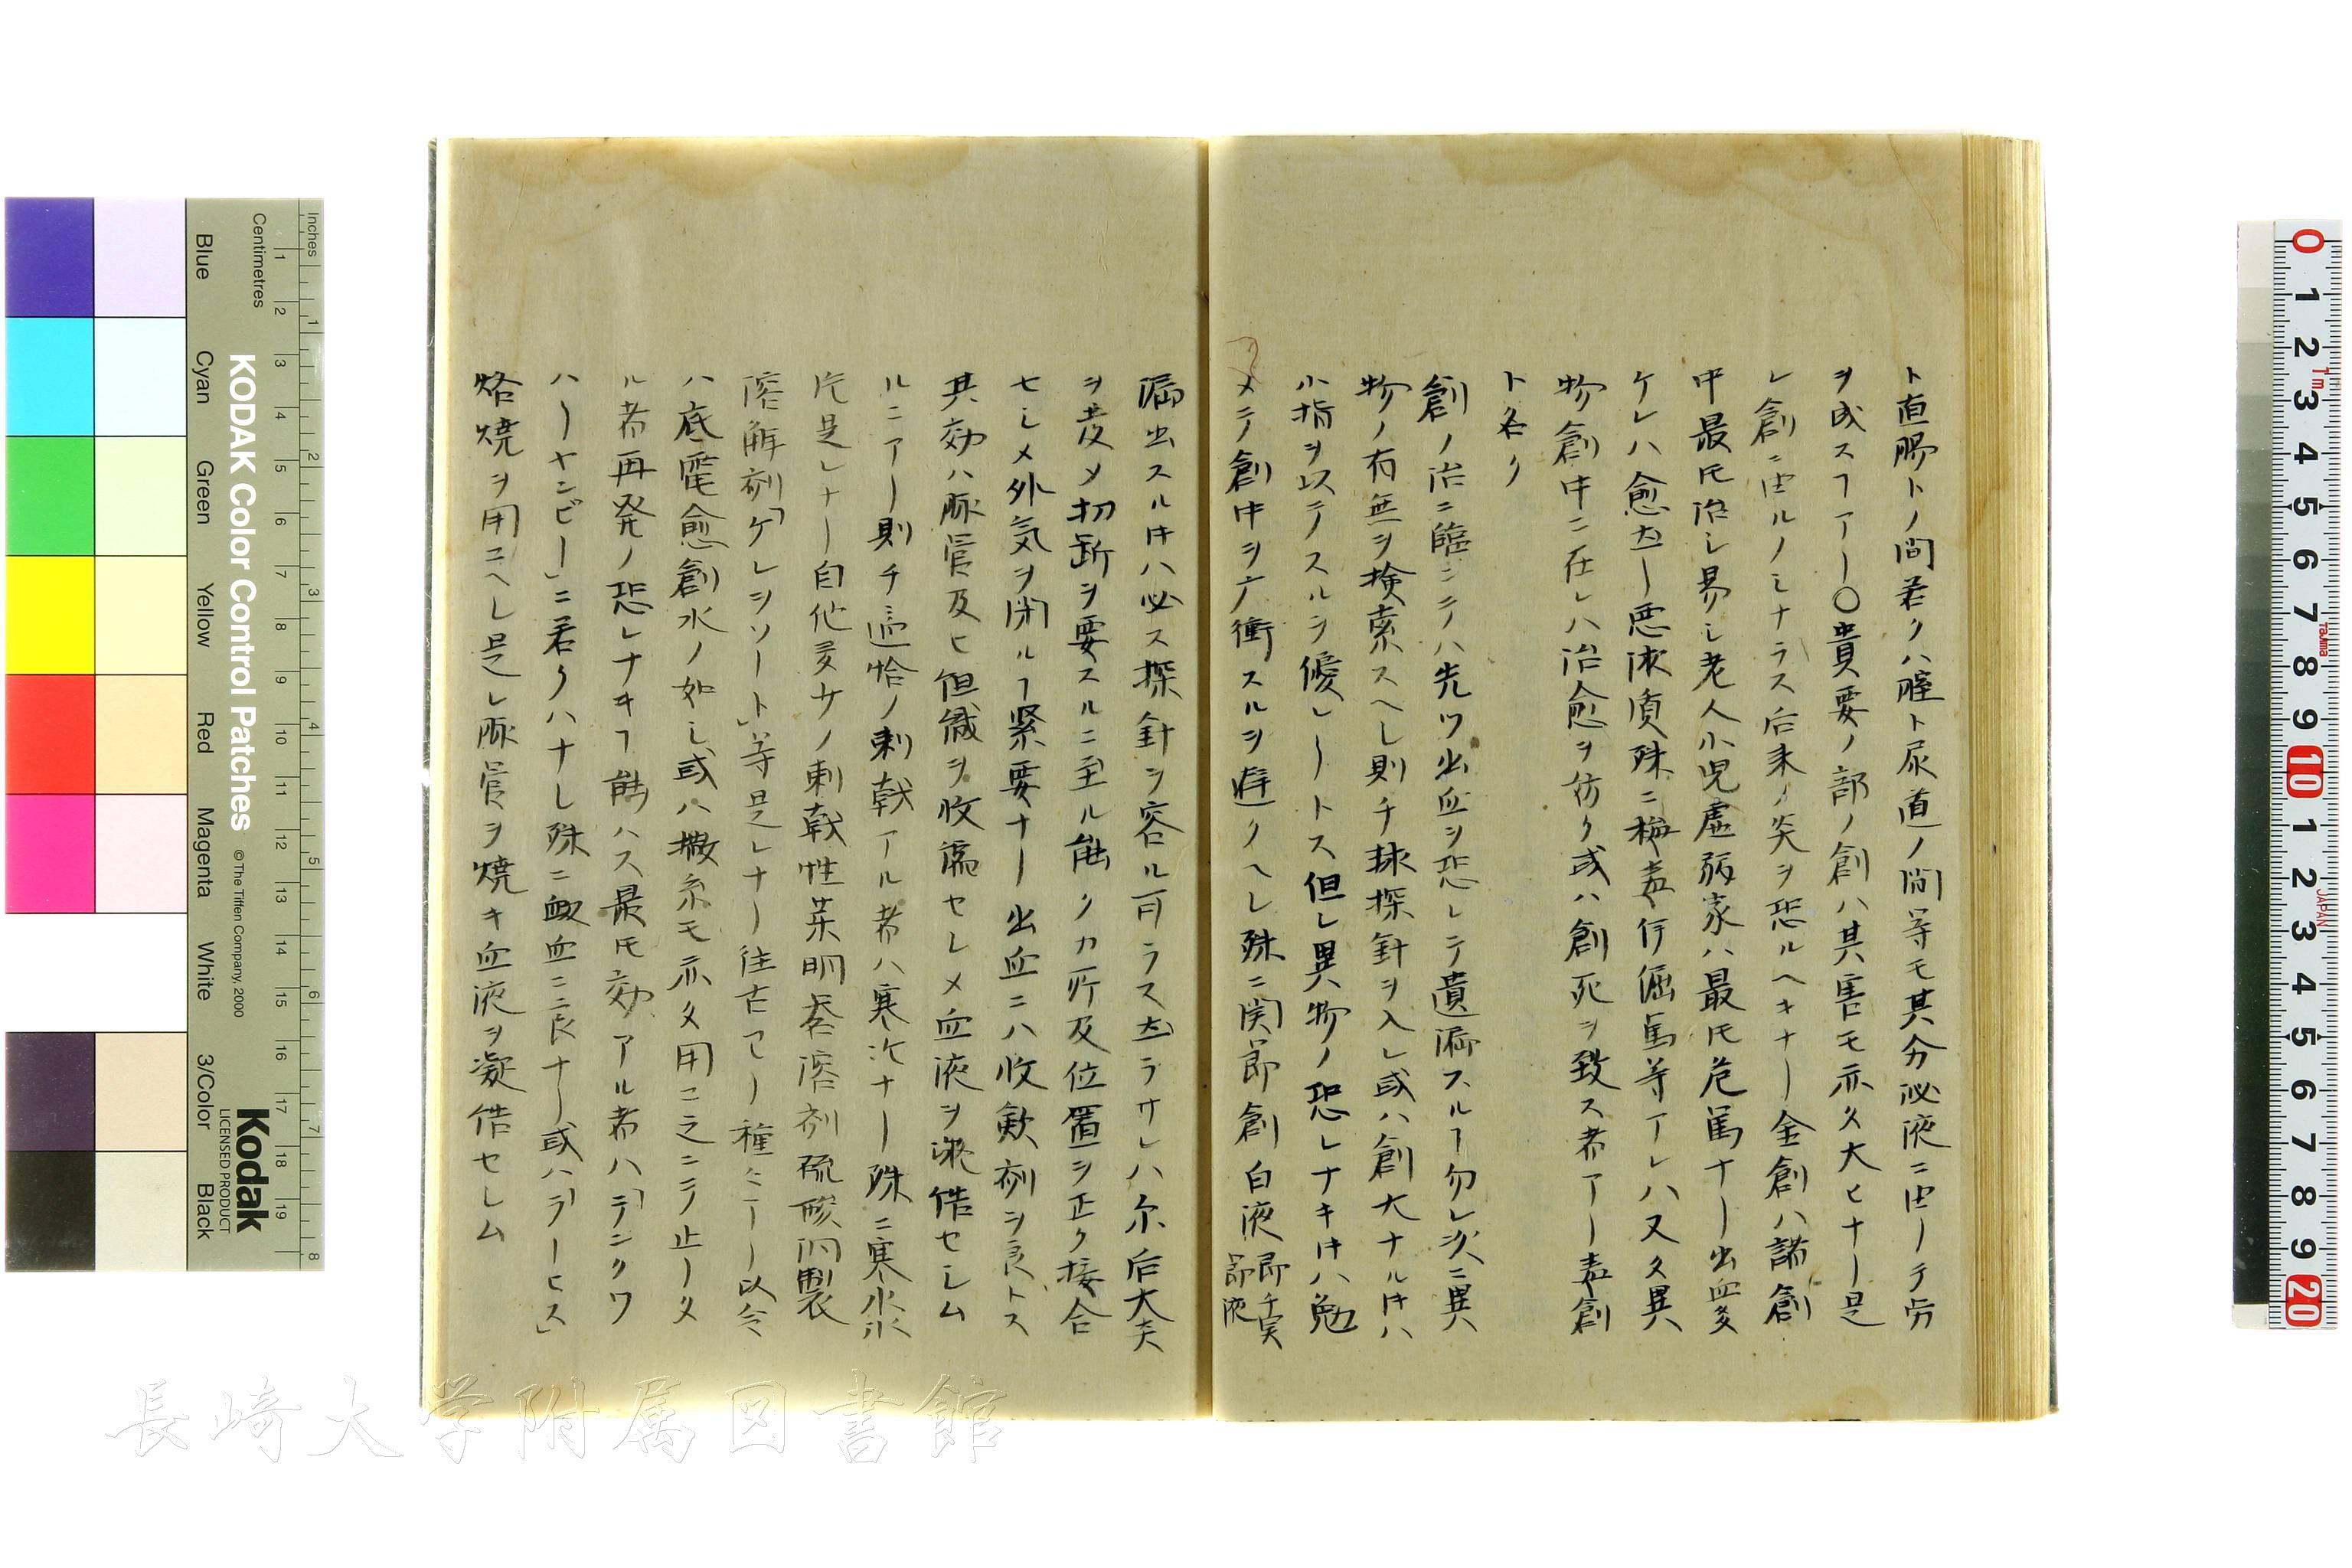 ト直腸トノ間若クハ膣ト尿道ノ間等モ其分泌液ニ由ーテ労
ヲ成スヿアー〇貴要ノ部ノ創ハ其害モ亦タ大ヒナー是
レ創ニ由ルノミナラス后来ノ炎ヲ恐ルヘキナー金創ハ諸創
中最モ治シ易シ老人小児虚弱家ハ最モ危篤ナー出血多
ケレハ愈 悪液質殊ニ梅毒 等アレハ又タ異
物創中ニ在レハ治愈ヲ妨ク或ハ創死ヲ致ス者アー毒創
ト名ク
創ノ治ニ臨ミテハ先ツ出血ヲ恐レテ遺漏スルヿ勿レ次ニ異
物ノ有無ヲ検索スヘし則チ 探針ヲ入レ或ハ創大ナル片ハ
小指ヲ以テスルヲ優レートス但し異物ノ恐レナキ片ハ勉
メテ創中ヲ 衝スルヲ避クヘし殊ニ関節創白液 即チ実節液
漏出スル片ハ必ス探針ヲ容ル可ラス 尓后大夫
ヲ 〆切断ヲ要スルニ至ル能クカ所及位置ヲ正ク接合
セしメ外気ヲ閉ルヿ緊要ナー出血ニハ收歛剤ヲ良トス
其効ハ脈管及ヒ但織ヲ收 セしメ血液ヲ凝 セしム
ルニアー則チ適恰ノ刺戟アル者ハ寒冷ナー殊ニ寒水氷
片是レナー自他 ノ刺戟性 明礬溶剤硫酸 製
溶解剤「ケレヲソート」等是レナー往古アー種々アー以今
ハ底電愈創水ノ如し或ハ撒糸モ亦タ用ニ之ニテ止ータ
ル者再発ノ恐レナキヿ能ハス最モ効アル者ハ「テンクワ
ハーヤンビー」ニ若クハナし殊ニ 血ニ良ナー或ハ「ラーヒス」
烙焼ヲ用ニヘし是レ脈管ヲ焼キ血液ヲ凝 セしム
長崎大学附属図書館
Inches
Centimetres
KODAK Color Control Patches
©The Tiffen Company, 2000
Kodak
LICENSED PRODUCT
Blue
Cyan
Green
Yellow
Red
Magenta
White
3/Color
Black
1 2 3 4 5 6 7 8 9 10 11 12 13 14 15 16 17 18 19
1 2 3 4 5 6 7 8
0 1 2 3 4 5 6 7 8 9 10 1 2 3 4 5 6 7 8 9 20
1m
Tajima
JAPAN